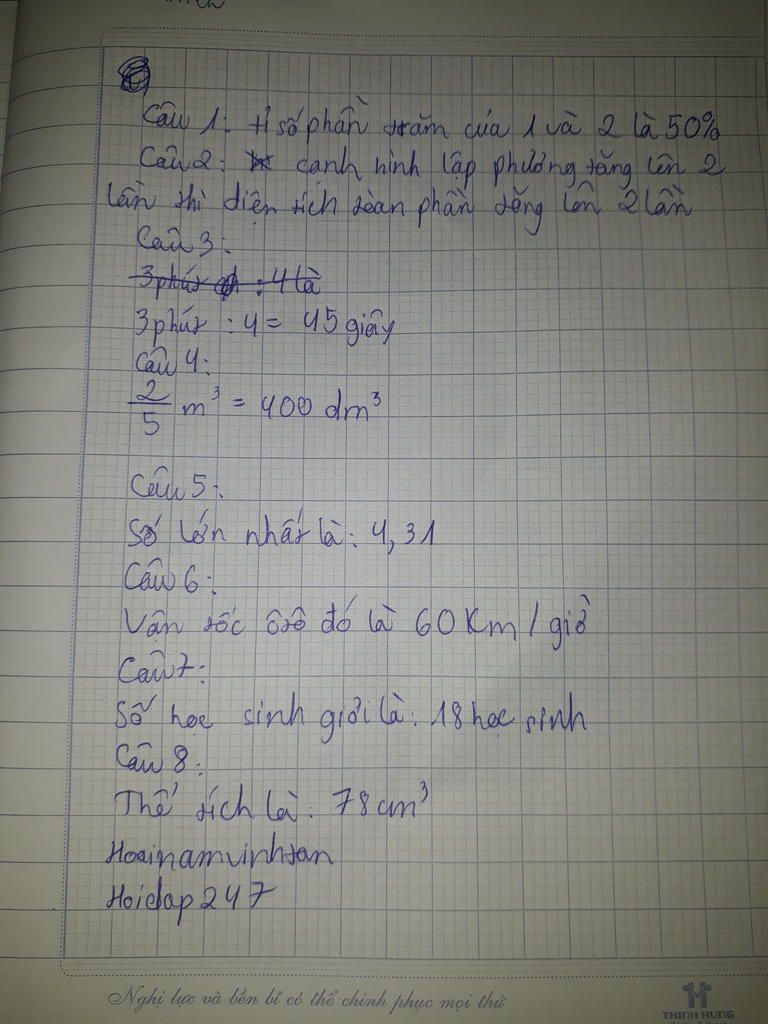 Câu 1: tỉ số phần trăm của 1 và 2 là 50%
Câu 2: cạnh hình lập phương tăng lên 2
lần thì diện tích toàn phần tăng lên 2 lần
Câu 3:
3 phút : 4 là
3 phút : 4 = 45 giây
Câu 4:
2/5 m³ = 400 dm³
Câu 5:
Số lớn nhất là: 4,31
Câu 6:
Vận tốc ôtô đó là 60 Km/giờ
Câu 7:
Số học sinh giỏi là: 18 học sinh
Câu 8:
Thể tích là: 78 cm³
Hoainamvinhtan
Hoidap247
Nghị lực và bền bỉ có thể chinh phục mọi thứ
THINH HUNG